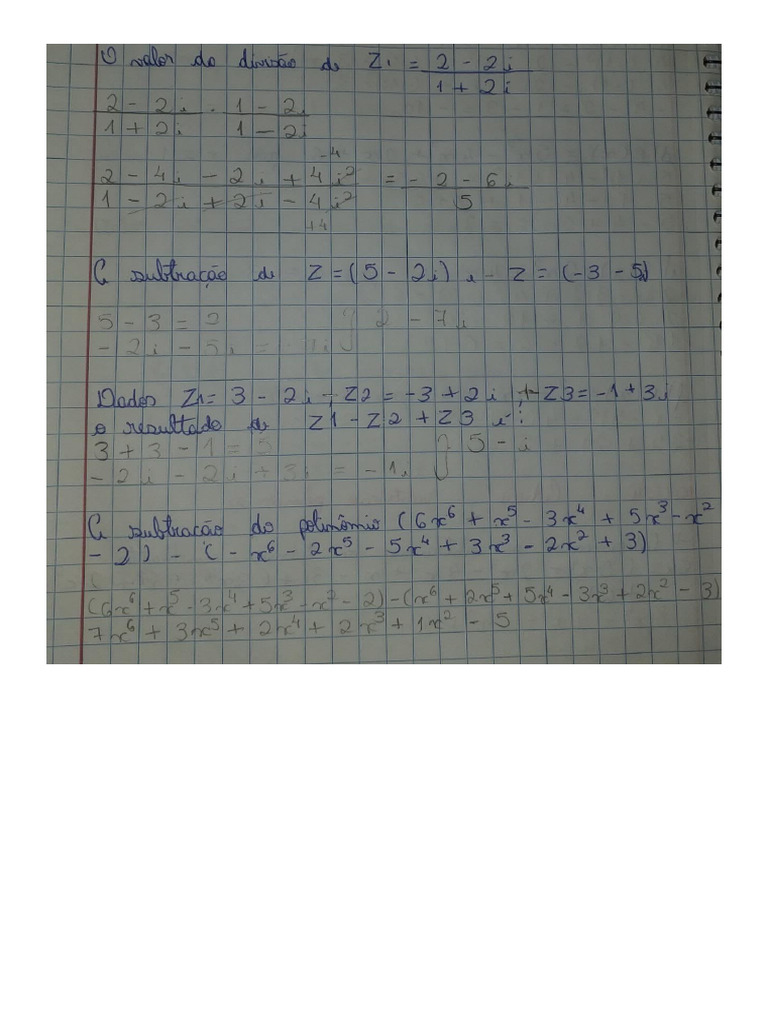 O valor do divisão de Z1 = 2 - 2i
1 + 2i
2 - 2i . 1 - 2i
1 + 2i 1 - 2i
-4
2 - 4i - 2i + 4i² = - 2 - 6i
1 - 2i + 2i - 4i² 5
+4
A subtração de Z = (5 - 2i) e Z = (-3 - 5i)
5 - 3 = 2 } 2 - 7i
- 2i - 5i = 
Dados Z1 = 3 - 2i, Z2 = -3 + 2i, Z3 = -1 + 3i
o resultado de Z1 - Z2 + Z3 é:
3 + 3 - 1 = 5 } 5 - i
- 2i - 2i + 3i = -1i
A subtração do polinômio (6x⁶ + x⁵ - 3x⁴ + 5x³ - x²
- 2) - (- x⁶ - 2x⁵ - 5x⁴ + 3x³ - 2x² + 3)
(6x⁶ + x⁵ - 3x⁴ + 5x³ - x² - 2) - (x⁶ + 2x⁵ + 5x⁴ - 3x³ + 2x² - 3)
7x⁶ + 3x⁵ + 2x⁴ + 2x³ + 1x² - 5